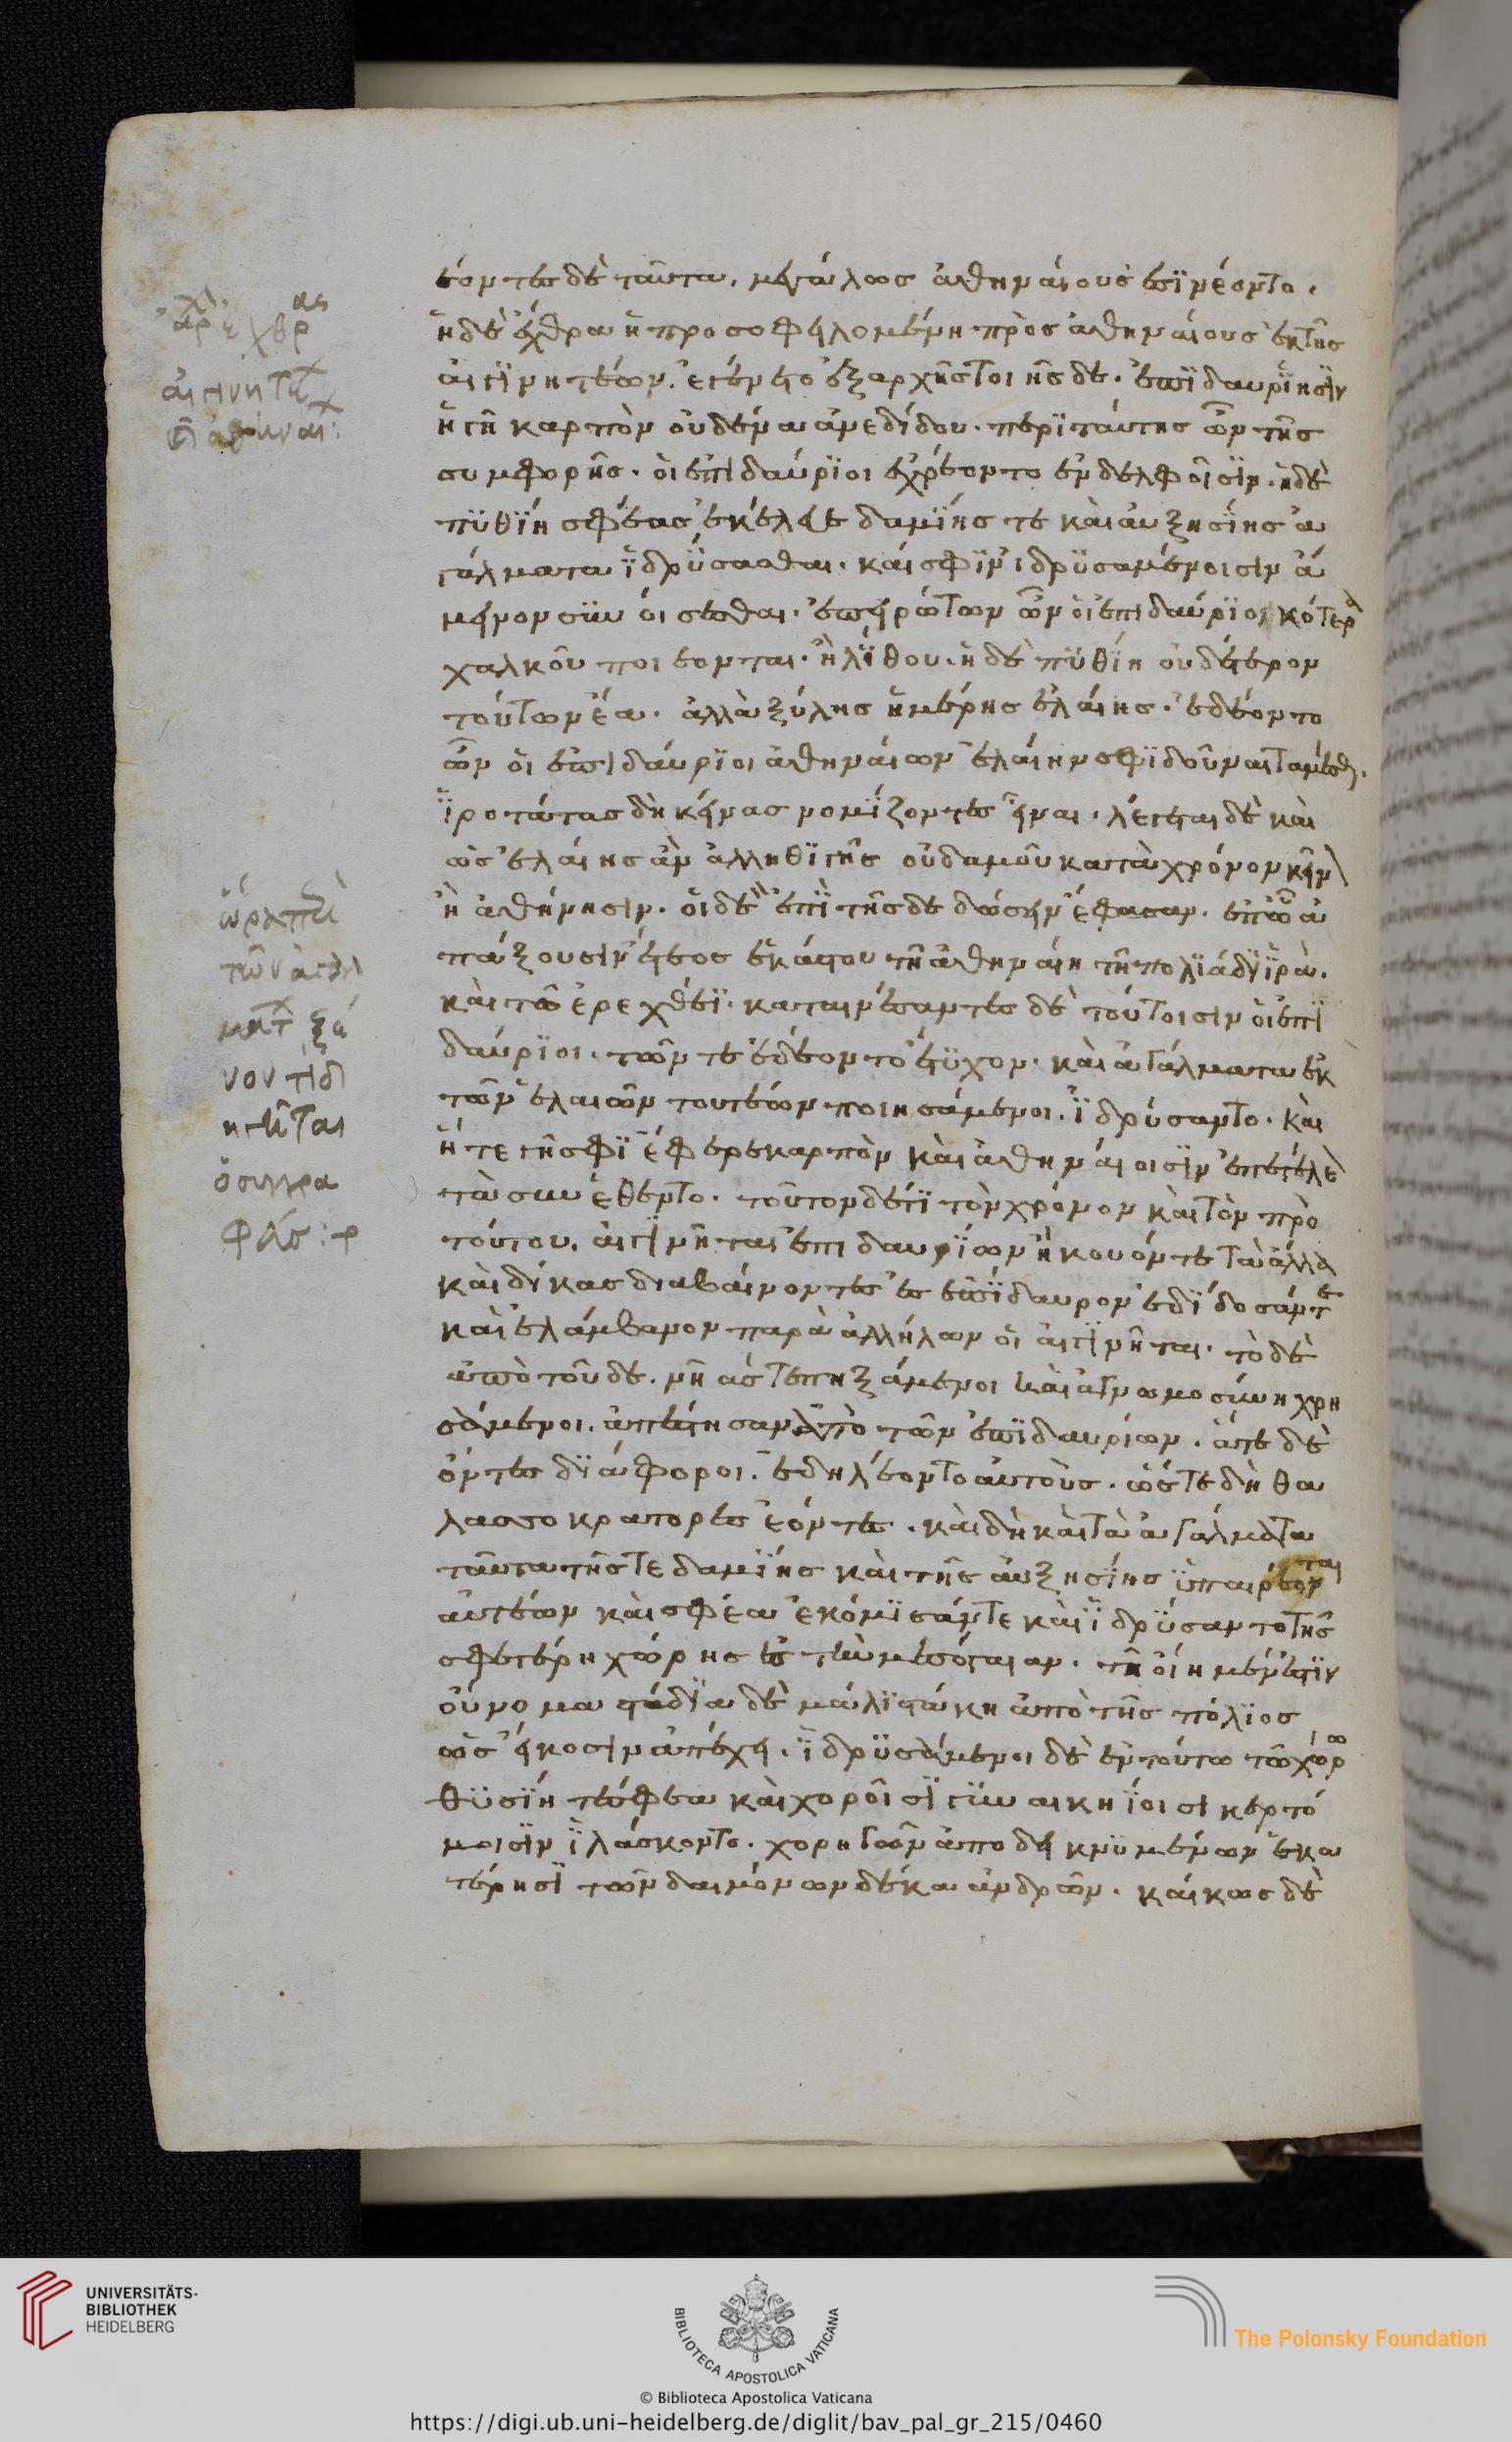 έοντες δὲ ταῦτα, μεγάλως ἀθηναίους ἐσϊνέοντο.
ἡ δὲ ἔχθρα ἡ προσοφειλομένη πρὸς ἀθηναίους ἐκ τῆς
αἰγϊνητέων. ἐγένετο ἐξ ἀρχῆς τοιῆσδε. ἐπϊδαυρΐησϊν
ἡ γῆ καρπὸν οὐδένα ἀνεδίδου. περϊ ταύτης ὦν τῆς
συμφορῆς. οἱ ἐπιδαύρϊοι ἐχρέοντο ἐν δελφοῖσϊν. ἡ δὲ
πϋθΐη σφέας ἐκέλευε δαμΐης τε καὶ αὐξησΐης ἀ
γάλματα ἱδρύσασθαι. καί σφϊν ἱδρϋσαμένοισιν ἄ
μεινον συν οίσεσθαι. ἐπειρώτων ὦν οἱ ἐπιδαύρϊοι κότερα
χαλκοῦ ποιέονται. ἢ λΐθου. ἡ δὲ πϋθΐη οὐδέτερον
τούτων ἔα. ἀλλὰ ξύλης ἡμέρης ἐλαίης. ἐδέοντο
ὦν οἱ ἐπιδαύρϊοι ἀθηναίων ἐλαίην σφϊ δοῦναι ταμέσθαι.
ἱροτάτας δὴ κείνας νομΐζοντες εἶναι. λέγεται δὲ καὶ
ὡς ἐλαίης ἂν ἄλληθϊ γῆς οὐδαμοῦ κατὰ χρόνον κεῖν
ἢ ἀθήνησιν. οἱ δὲ ἐπϊ τῆσδε δώσειν ἔφασαν. ἐπ ὧ ἀ
πάξουσιν ἔτεος ἑκάστου τῆ ἀθηναίη τῆ πολϊάδϊ ἱρὰ.
καὶ τῶ ἐρεχθέϊ. καταινέσαντες δὲ τούτοισιν οἱ ἐπϊ
δαύρϊοι. τῶν τε ἐδέοντο ἔτϋχον. καὶ ἀγάλματα ἐκ
τῶν ἐλαιῶν τουτέων ποιησάμενοι. ἱδρύσαντο. καὶ
ἥ τε γῆ σφϊ ἔφερε καρπὸν καὶ ἀθηναίοισϊν ἐπετέλε
τὰ συνέθεντο. τοῦτον δέτϊ τὸν χρόνον καὶ τὸν πρὸ
τούτου. αἰγϊνῆται ἐπιδαυρΐων ἤκουόν τε τὰ ἄλλα
καὶ δίκας διαβαίνοντες ἐς ἐπΐδαυρον ἐδΐδοσάν τε
καὶ ἐλάμβανον παρὰ ἀλλήλων οἱ αἰγϊνῆται. τὸ δὲ
ἀπὸ τοῦδε. νῆάς τε πηξάμενοι καὶ ἀγνωμοσύνη χρη
σάμενοι. ἀπέστησαν ἀπὸ τῶν ἐπϊδαυρίων. ἅτε δὲ
ἐόντες δϊάφοροι. ἐδηλέοντο αὐτοὺς. ὥστε δὴ θα
λασσοκράτορες ἐόντες. καὶ δὴ καὶ τὰ ἀγάλματα
ταῦτα τῆς τε δαμΐης καὶ τῆς αὐξησΐης ὑπαιρέονται
αὐτέων καὶ σφέα ἐκόμϊσάν τε καὶ ἱδρΰσαντο τῆς
σφετέρη χώρης ἐς τὴν μεσόγαιαν. τῆ οἴη μέν ἐστϊν
οὔνομα στάδϊα δὲ μάλϊστά κη ἀπὸ τῆς πόλϊος
ὡς εἴκοσιν ἀπέχει. ἱδρϋσάμενοι δὲ ἐν τούτω τῶ χώρω
θϋσΐη τέ σφεα καὶ χοροῖσϊ γϋναικηΐοισι κερτό
μοισϊν ἱλάσκοντο. χορηγῶν ἀποδεικνϋμένων ἑκα
τέρησϊ τῶν δαιμόνων δέκα ἀνδρῶν. κακῶς δὲ